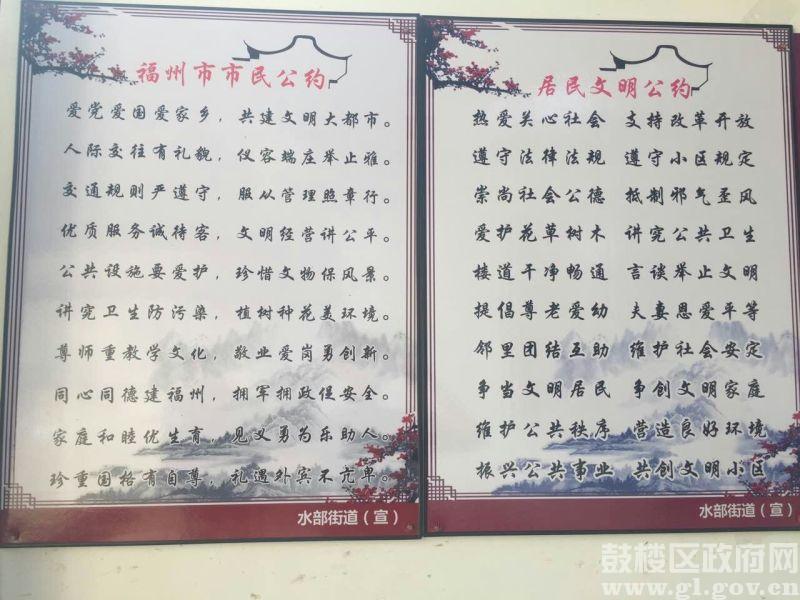 福州市市民公约
爱党爱国爱家乡，共建文明大都市。
人际交往有礼貌，仪容端庄举止雅。
交通规则严遵守，服从管理照章行。
优质服务诚待客，文明经营讲公平。
公共设施要爱护，珍惜文物保风景。
讲究卫生防污染，植树种花美环境。
尊师重教学文化，敬业爱岗勇创新。
同心同德建福州，拥军拥政促安全。
家庭和睦优生育，见义勇为乐助人。
珍重国格有自尊，礼遇外宾不亢卑。
水部街道（宣）
居民文明公约
热爱关心社会 支持改革开放
遵守法律法规 遵守小区规定
崇尚社会公德 抵制邪气歪风
爱护花草树木 讲究公共卫生
楼道干净畅通 言谈举止文明
提倡尊老爱幼 夫妻恩爱平等
邻里团结互助 维护社会安定
争当文明居民 争创文明家庭
维护公共秩序 营造良好环境
振兴公共事业 共创文明小区
水部街道（宣）
鼓楼区政府网
www.gl.gov.cn